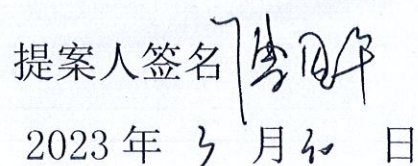 提案人签名
2023 年 3 月 20 日